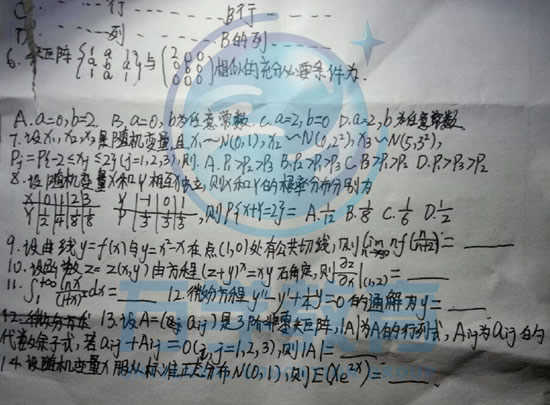 C. 行 B行
D. 列 B的列
6. 矩阵 {1 a 1 a b a 1 a 1} 与 {2 0 0 0 b 0 0 0 0} 相似的充分必要条件为
A. a=0,b=2 B. a=0, b为任意常数 C. a=2,b=0 D. a=2, b为任意常数
7. 设X1, X2, X3是随机变量,且X1~N(0,1), X2~N(0,2²), X3~N(5,3²),
Pj=P{-2≤Xj≤2}(j=1,2,3),则 A. P1>P2>P3 B. P2>P1>P3 C. P3>P1>P2 D. P1>P3>P2
8. 设随机变量X和Y相互独立,则X和Y的概率分布分别为
X 0 1 2 3 Y -1 0 1
P 1/2 1/4 1/8 1/8 P 1/3 1/3 1/3 ,则P{X+Y=2}= A. 1/12 B. 1/8 C. 1/6 D. 1/2
9. 设曲线y=f(x)与y=x²-x在点(1,0)处有公共切线,则lim n→∞ nf(n/n+2)=
10. 设函数z=z(x,y)由方程(z+y)^x=xy确定,则∂z/∂x|(1,2)=
11. ∫1 +∞ lnx/(1+x)² dx= 12. 微分方程y''-y'+1/4y=0的通解为y=
12. 微分方 13. 设A=(aij)是3阶非零矩阵,|A|为A的行列式,Aij为aij的
代数余子式,若aij+Aij=0(i,j=1,2,3),则|A|=
14. 设随机变量X服从标准正态分布N(0,1),则E(Xe^2X)=